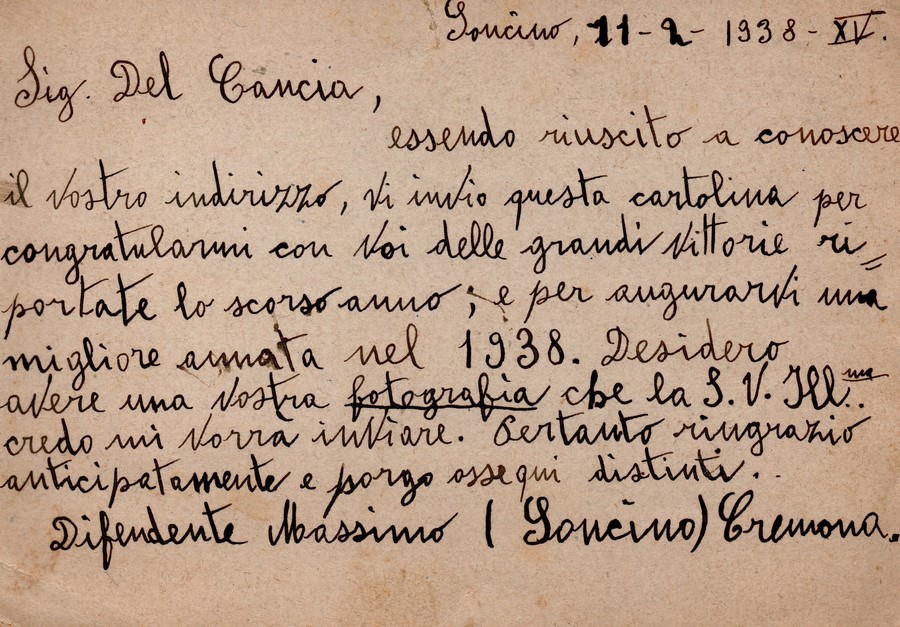 Soncino, 11-2-1938-XV.
Sig. Del Cancia,
essendo riuscito a conoscere
il vostro indirizzo, vi invio questa cartolina per
congratularmi con voi delle grandi vittorie ri=
portate lo scorso anno, e per augurarvi una
migliore annata nel 1938. Desidero
avere una vostra fotografia che la S. V. Ill.ma
credo mi vorrà inviare. Pertanto ringrazio
anticipatamente e porgo ossequi distinti.
Difendente Massimo (Soncino) Cremona.